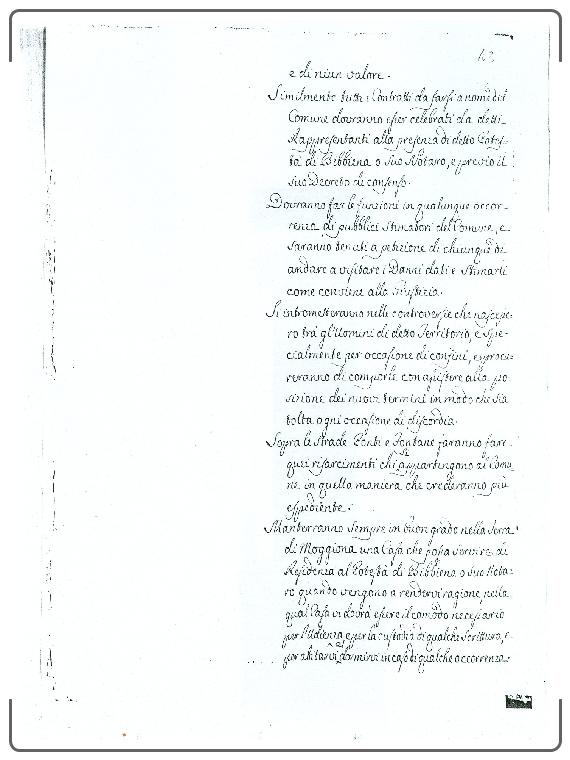 e di niun valore.
Similmente tutti i Contratti da farsi a nome del
Comune dovranno esser celebrati da detti
Rappresentanti alla presenza di detto Potes-
tà di Bibbiena o suo Notaro, e previo il
suo Decreto di consenso.
Dovranno far le funzioni in qualunque occor-
renza di pubblici Stimatori del Comune, e
saranno tenuti a petizione di chiunque di
andare a visitare i Danni dati e stimarli
come conviene alla Giustizia.
Si intrometteranno nelle controversie che nascesse-
ro tra gl'Uomini di detto Territorio, e spe-
cialmente per occasione di confini, e procu-
reranno di comporle con assistere alla po-
sizione dei nuovi termini in modo che sia
tolta ogni occasione di discordia.
Sopra le strade Ponti e Fontane faranno fare
quei risarcimenti che si appartengono al Comu-
ne in quella maniera che crederanno più
espediente.
Manterranno sempre in buon grado nella Terra
di Moggiona una Casa che possa servire di
Residenza al Potestà di Bibbiena o suo Nota-
ro quando vengono a rendervi ragione, nella
qual Casa vi dovrà essere il comodo necessario
per l'Udienza e per la custodia di qualche scrittura, e
per abitarvi e dormirvi in caso di qualche occorrenza.